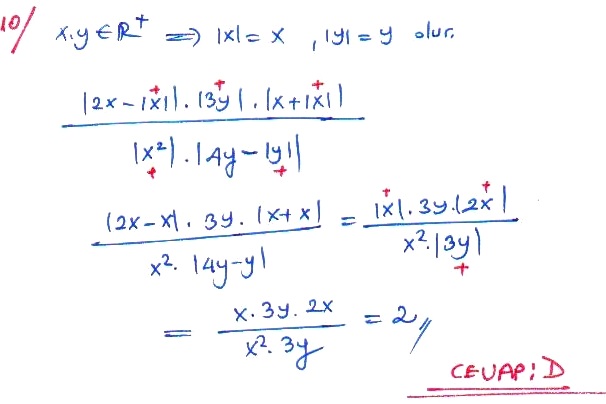 10/ x,y ∈ R⁺ ⟹ |x| = x , |y| = y olur.
|2x - |x|| . |3y| . |x + |x||
|x²| . |4y - |y||
|2x - x| . 3y . |x + x| = |x| . 3y . |2x|
x² . |4y - y| x² . |3y|
= x . 3y . 2x = 2 //
x² . 3y
CEVAP: D